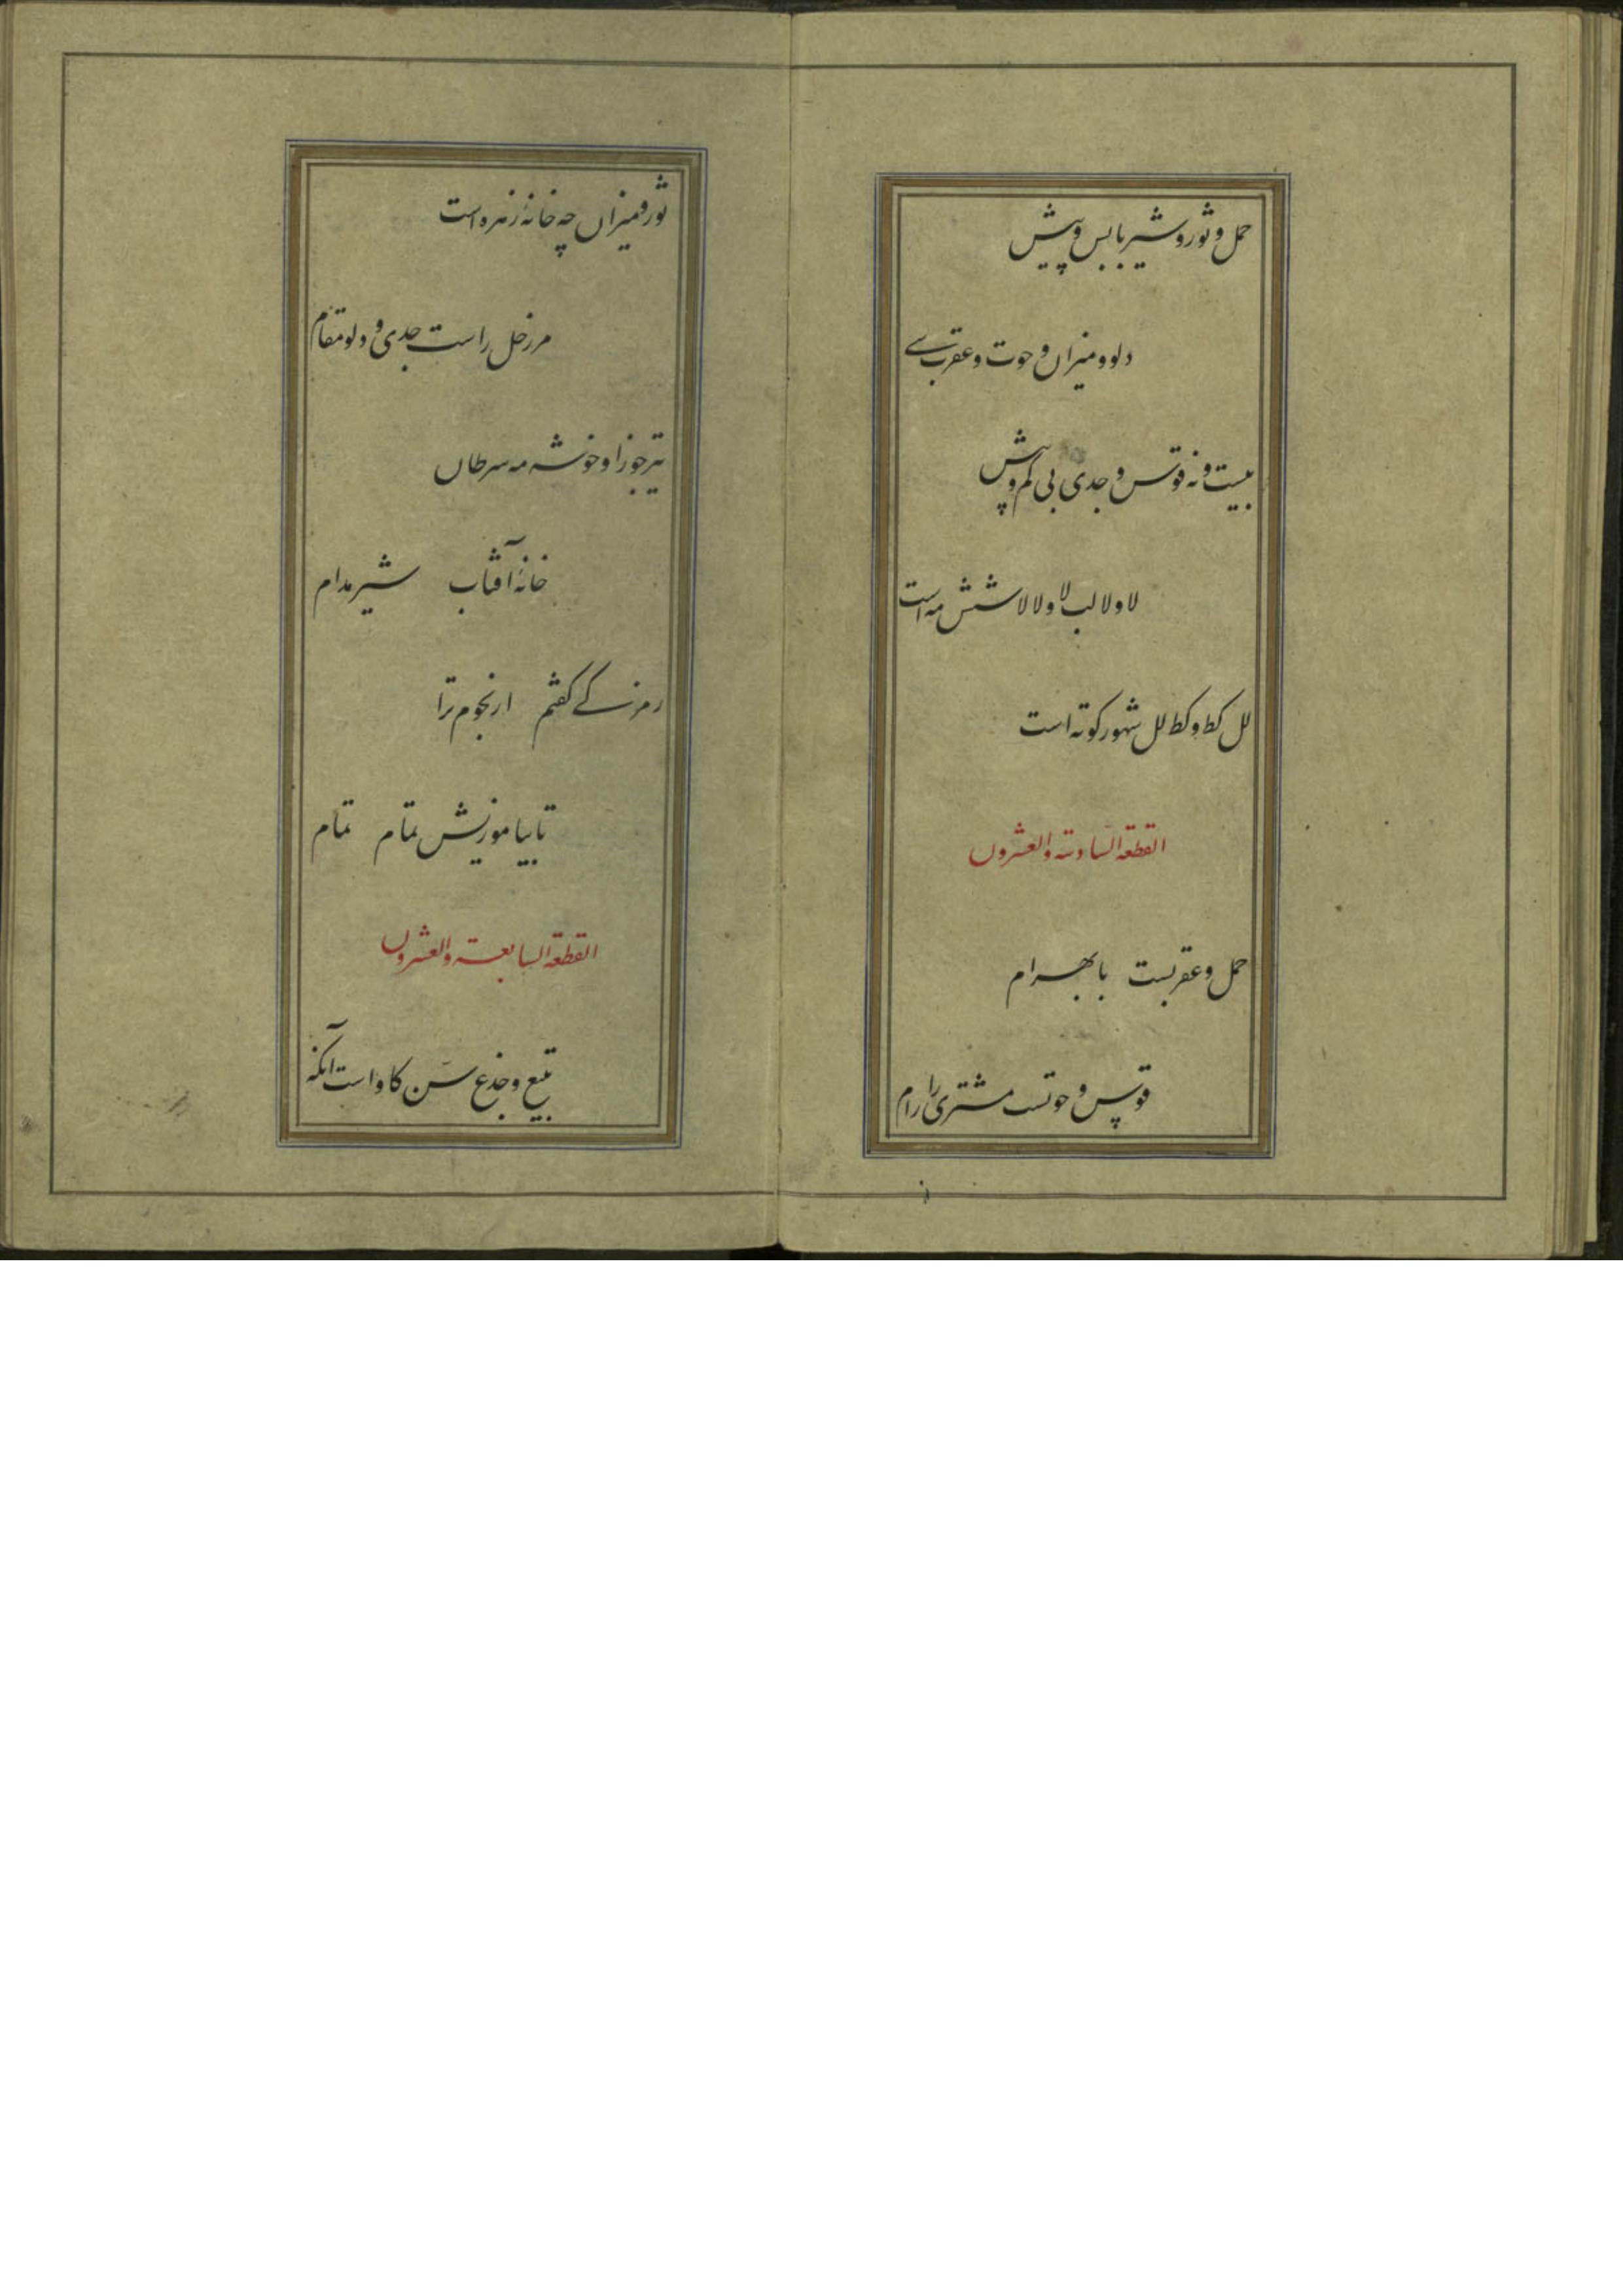 حمل و ثور و شیر با پس و پیش
دلو و میزان و حوت و عقرب سی
بیست و نه قوس و جدی بی کم و بیش
لا و لا لب لا و لا لا شش مه است
لل کط و کط لل شهور کوته است
القطعة السادسة والعشرون
حمل و عقربست با بهرام
قوس و حوتست مشتری را رام
ثور و میزان چه خانهٔ زهره است
مر زحل راست جدی و دلو مقام
تیر جوزا و خوشه مه سرطان
خانهٔ آفتاب شیر مدام
رمزکی گفتم از نجوم ترا
تا بیاموزیش تمام تمام
القطعة السابعة والعشرون
تبیع و جذع سن گاو است آنکه